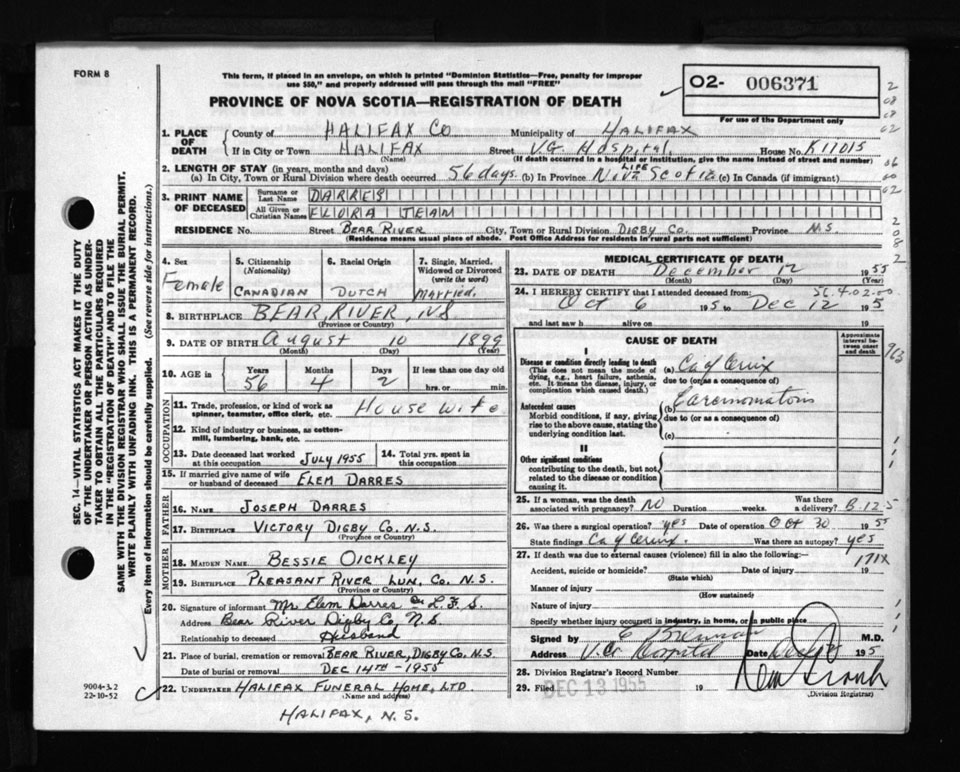 FORM 8
This form, if placed in an envelope, on which is printed "Dominion Statistics—Free, penalty for improper
use $50," and properly addressed will pass through the mail "FREE"
PROVINCE OF NOVA SCOTIA—REGISTRATION OF DEATH
02- 006371
For use of the Department only
1. PLACE OF DEATH
County of HALIFAX CO Municipality of HALIFAX
If in City or Town HALIFAX Street V.G. Hospital House No. K11015
(Name) (If death occurred in a hospital or institution, give the name instead of street and number)
2. LENGTH OF STAY (in years, months and days)
(a) In City, Town or Rural Division where death occurred 56 days. (b) In Province LIFE Nova Scotia (c) In Canada (if immigrant)
3. PRINT NAME OF DECEASED
Surname or Last Name DARRES
All Given or Christian Names FLORA JEAN
RESIDENCE No. Street BEAR RIVER City, Town or Rural Division DIGBY CO. Province N.S.
(Residence means usual place of abode. Post Office Address for residents in rural parts not sufficient)
4. Sex Female
5. Citizenship (Nationality) CANADIAN
6. Racial Origin DUTCH
7. Single, Married, Widowed or Divorced (write the word) Married.
8. BIRTHPLACE BEAR RIVER, NS
(Province or Country)
9. DATE OF BIRTH August 10 1899
(Month) (Day) (Year)
10. AGE in Years 56 Months 4 Days 2 If less than one day old
hrs. or min.
OCCUPATION
11. Trade, profession, or kind of work as spinner, teamster, office clerk, etc. House wife
12. Kind of industry or business, as cotton-mill, lumbering, bank, etc.
13. Date deceased last worked at this occupation JULY 1955 14. Total yrs. spent in this occupation
15. If married give name of wife or husband of deceased ELEM DARRES
FATHER
16. NAME JOSEPH DARRES
17. BIRTHPLACE VICTORY DIGBY CO. N.S.
(Province or Country)
MOTHER
18. MAIDEN NAME BESSIE OICKLEY
19. BIRTHPLACE PLEASANT RIVER LUN. CO. N.S.
(Province or Country)
20. Signature of informant Mr Elem Darres L.F.S.
Address Bear River Digby Co N.S.
Relationship to deceased Husband
21. Place of burial, cremation or removal BEAR RIVER, DIGBY CO. N.S.
Date of burial or removal DEC 14TH - 1955
22. UNDERTAKER HALIFAX FUNERAL HOME, LTD.
(Name and address)
HALIFAX, N.S.
9004-3.2
22-10-52
SEC. 14—VITAL STATISTICS ACT MAKES IT THE DUTY
OF THE UNDERTAKER OR PERSON ACTING AS UNDER-
TAKER TO OBTAIN ALL THE PARTICULARS REQUIRED
IN THE "REGISTRATION OF DEATH" AND TO FILE THE
SAME WITH THE DIVISION REGISTRAR WHO SHALL ISSUE THE BURIAL PERMIT.
WRITE PLAINLY WITH UNFADING INK. THIS IS A PERMANENT RECORD.
Every item of information should be carefully supplied. (See reverse side for instructions.)
MEDICAL CERTIFICATE OF DEATH
23. DATE OF DEATH December 12 1955
(Month) (Day) (Year)
24. I HEREBY CERTIFY that I attended deceased from: 56.4-02-00
Oct 6 195 to Dec 12 195
and last saw h alive on 19
CAUSE OF DEATH
Approximate interval between onset and death
I
Disease or condition directly leading to death
(This does not mean the mode of dying, e.g., heart failure, asthenia, etc. It means the disease, injury, or complication which caused death.)
(a) Ca of Cervix
due to (or as a consequence of)
Antecedent causes
Morbid conditions, if any, giving rise to the above cause, stating the underlying condition last.
(b) Carcinomatosis
due to (or as a consequence of)
(c)
II
Other significant conditions
contributing to the death, but not related to the disease or condition causing it.
25. If a woman, was the death associated with pregnancy? NO Duration weeks. Was there a delivery?
26. Was there a surgical operation? yes Date of operation Oct 30 1955
State findings Ca of Cervix Was there an autopsy? yes
27. If death was due to external causes (violence) fill in also the following:—
171X
Accident, suicide or homicide? Date of injury 19
(State which)
Manner of injury
(How sustained)
Nature of injury
Specify whether injury occurred in industry, in home, or in public place
Signed by M.D.
Address V.G. Hospital Date 195
28. Division Registrar's Record Number
29. Filed DEC 13 1955 19
(Division Registrar)